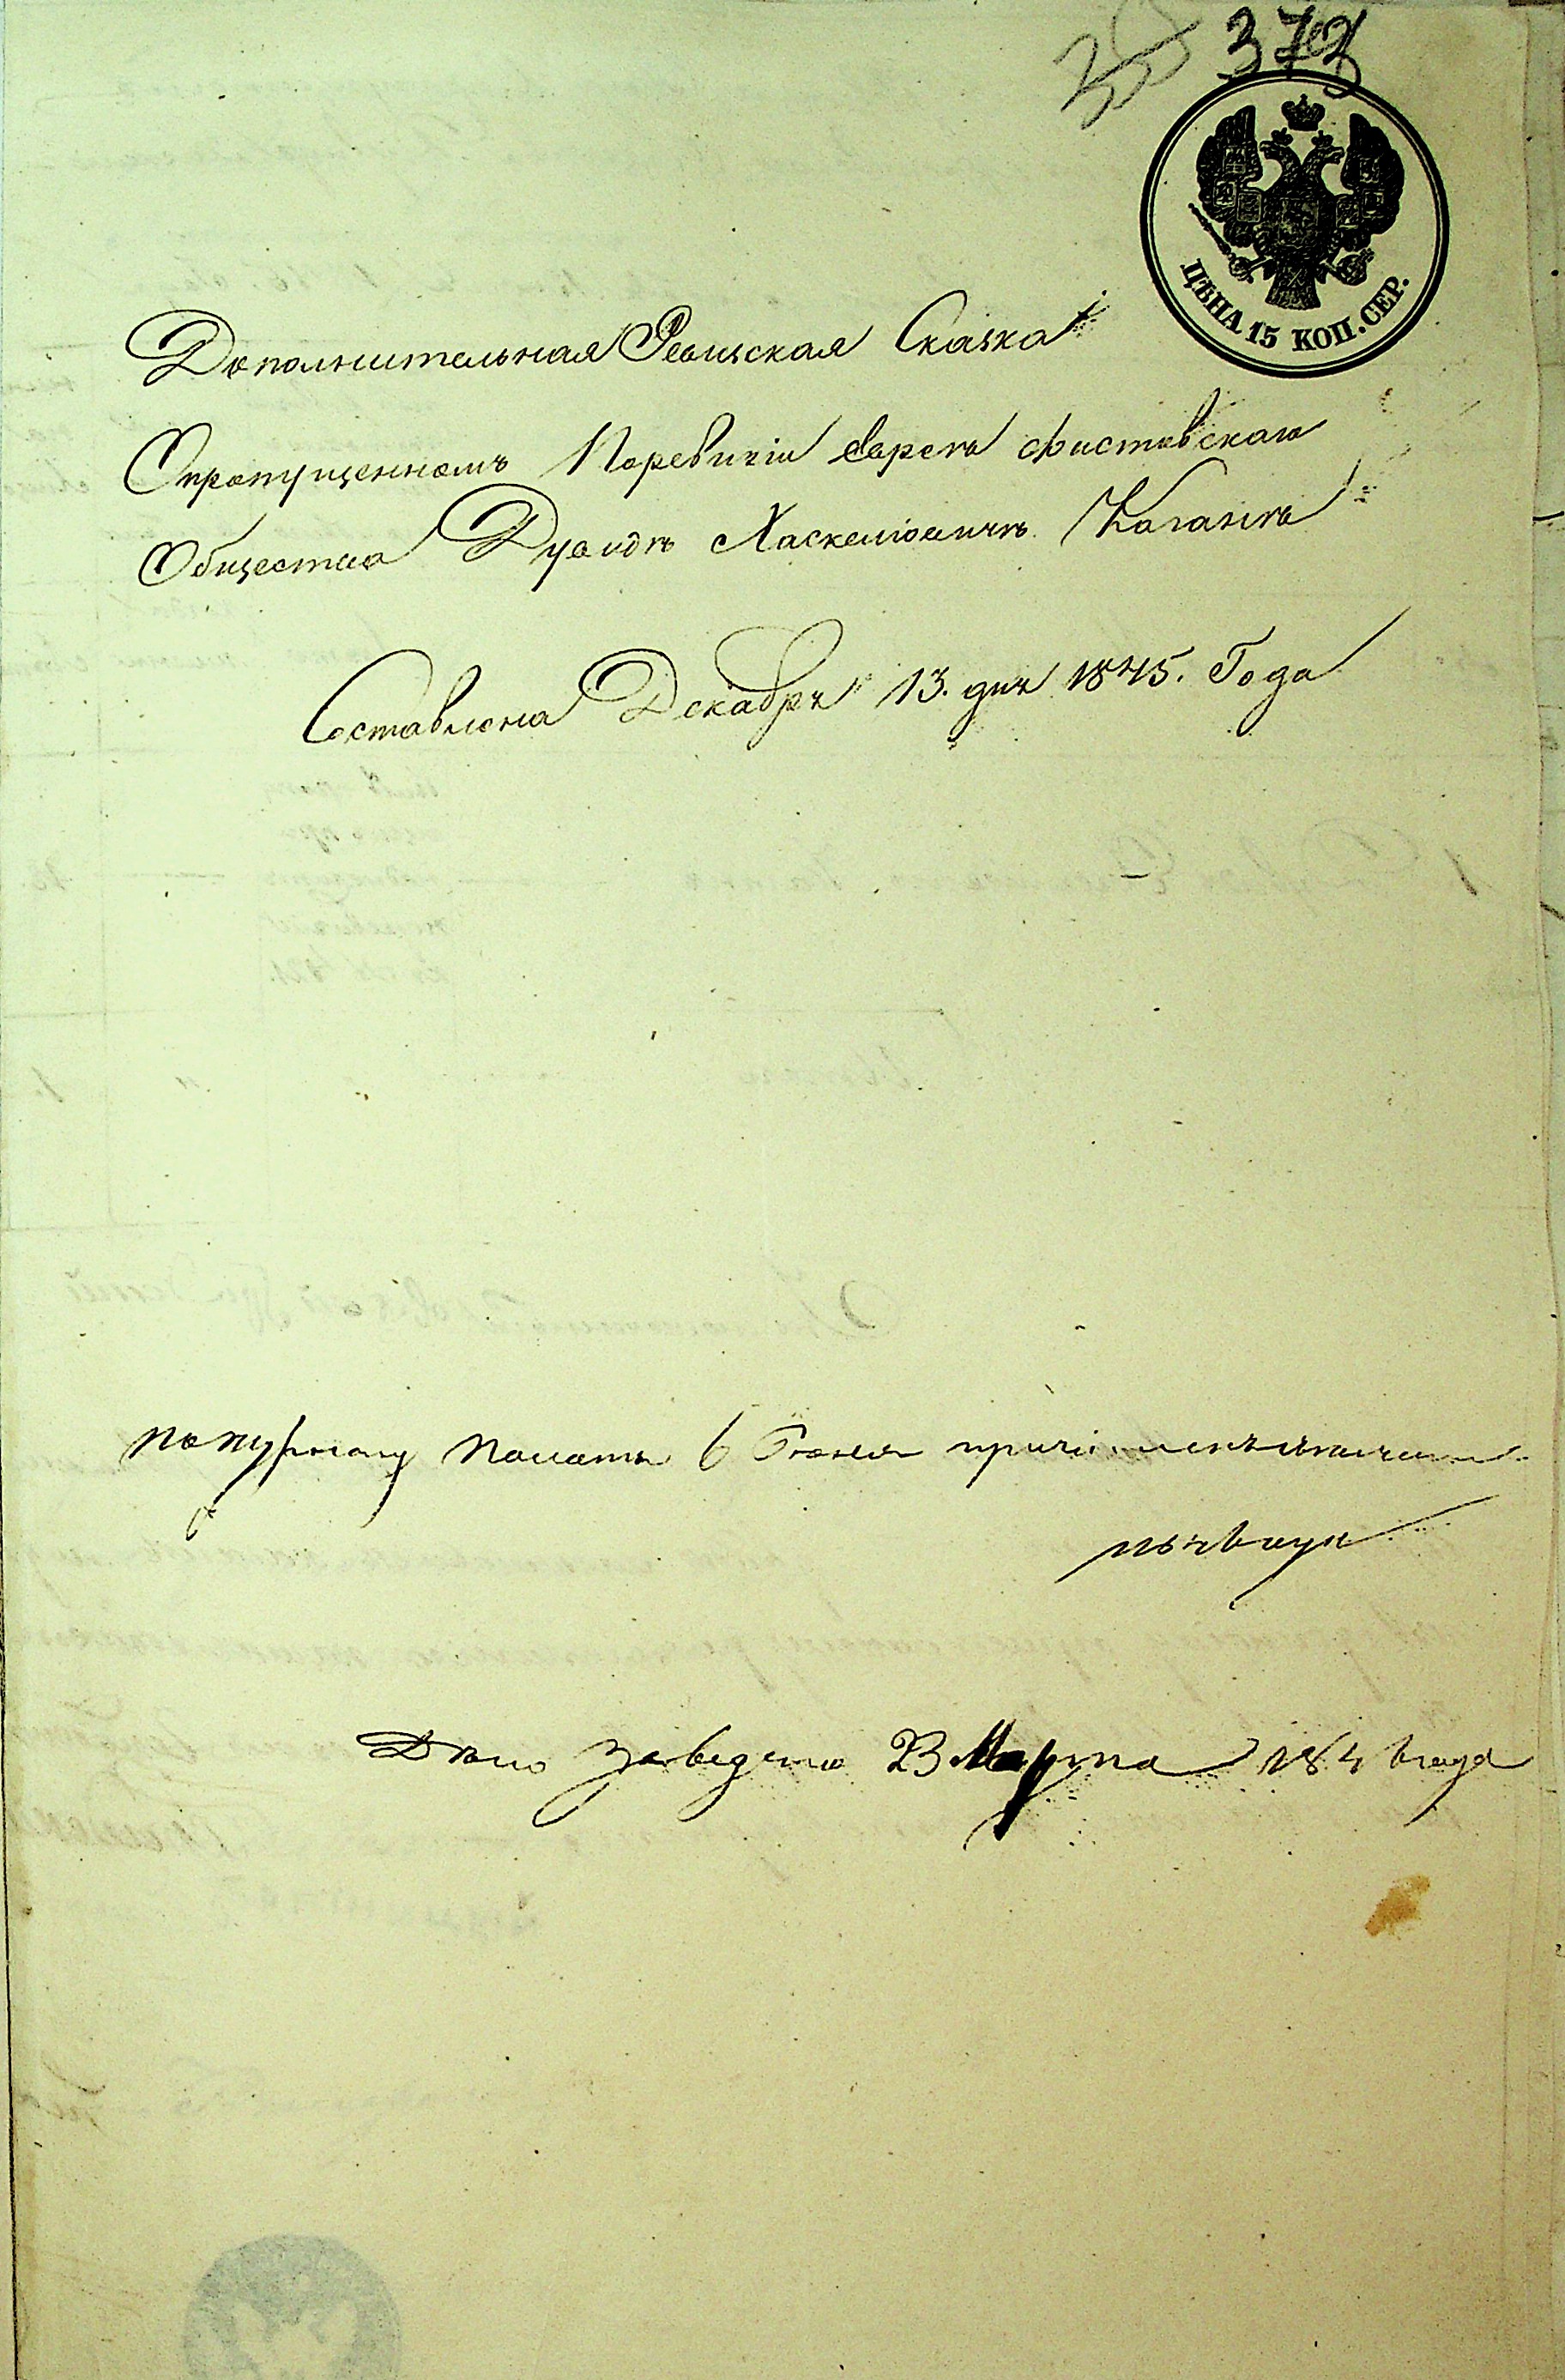 373
ЦѢНА 15 КОП. СЕР.
Дополнительная Ревизская Сказка
О пропущенномъ По ревизіи Евреѣ Фастовскаго
Общества Дувидѣ Хаскелiовичѣ Каганѣ
Составлена Декабря 13. дня 1845. Года
По журналу Палаты 6 Іюня
Дѣло заведено 23 Марта 184 года